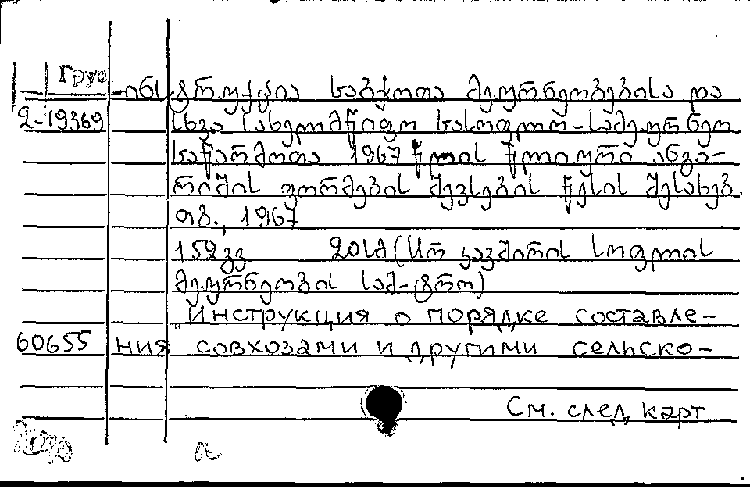 Груз
ინსტრუქცია საბჭოთა მეურნეობებისა და
2-19369 სხვა სახელმწიფო სასოფლო-სამეურნეო
საწარმოთა 1967 წლის წლიური ანგა-
რიშის ფორმების შევსების წესის შესახებ.
თბ., 1967
152 გვ 20სმ (სსრ კავშირის სოფლის
მეურნეობის სამ-ტრო)
Инструкция о порядке составле-
60655 ния совхозами и другими сельско-
См. след. карт